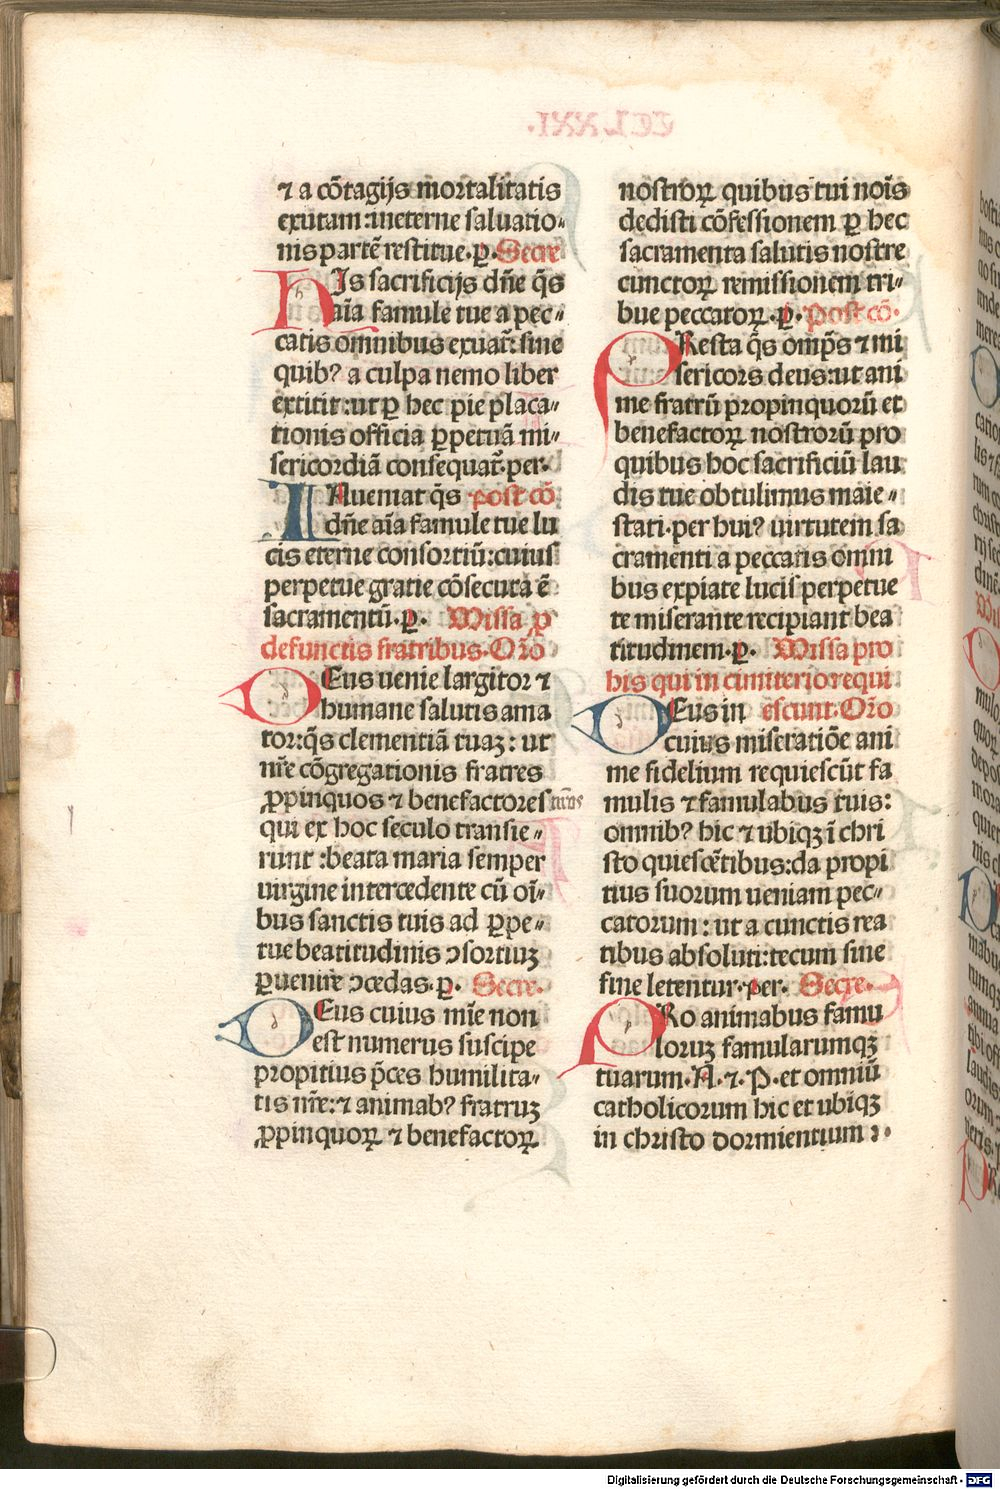 ⁊ a cõtagijs mortalitatis
exutam: in eterne saluatio-
nis partẽ restitue. ꝑ. Secre
HIs sacrificijs dñe q̃s
aĩa famule tue a pec-
catis omnibus exuat̃: sine
quib? a culpa nemo liber
extitit: ut ꝑ hec pie placa-
tionis officia ꝑpetuã mi-
sericordiã consequat̃. per.
INueniat q̃s post cõ
dñe aĩa famule tue lu
cis eterne consortiũ: cuius
perpetue gratie cõsecuta ẽ
sacramentũ. ꝑ. Missa ꝓ
defunctis fratribus. Oro
DEus uenie largitor ⁊
humane salutis ama
tor: q̃s clementiã tuaꝫ: ut
nr̃e cõgregationis fratres
ꝓpinquos ⁊ benefactores nr̃os
qui ex hoc seculo transie-
runt: beata maria semper
uirgine intercedente cũ oĩ-
bus sanctis tuis ad ꝑpe-
tue beatitudinis ↄsortiuꝫ
ꝑuenire ↄcedas. ꝑ. Secre.
DEus cuius mĩe non
est numerus suscipe
propitius p̃ces humilita-
tis nr̃e: ⁊ animab? fratruꝫ
ꝓpinquoꝝ ⁊ benefactoꝝ
nostroꝝ quibus tui noĩs
dedisti cõfessionem ꝑ hec
sacramenta salutis nostre
cunctoꝝ remissionem tri-
bue peccatoꝝ. ꝑ. Post cõ.
PResta q̃s omp̃s ⁊ mi
sericors deus: ut ani
me fratrũ propinquorũ et
benefactoꝝ nostrorũ pro
quibus hoc sacrificiũ lau
dis tue obtulimus maie-
stati. per hui? uirtutem sa
cramenti a peccatis omni
bus expiate lucis perpetue
te miserante recipiant bea
titudinem. ꝑ. Missa pro
his qui in cimiterio requi
DEus in escunt. Oro
cuius miseratiõe ani
me fidelium requiescũt fa
mulis ⁊ famulabus tuis:
omnib? hic ⁊ ubiqꝫ ĩ chri
sto quiescẽtibus: da propi
tius suorum ueniam pec-
catorum: ut a cunctis rea
tibus absoluti: tecum sine
fine letentur. per. Secre.
PRo animabus famu
loruꝫ famularumqꝫ
tuarum. N. ⁊. P. et omniũ
catholicorum hic et ubiqꝫ
in christo dormientium
Digitalisierung gefördert durch die Deutsche Forschungsgemeinschaft - DFG